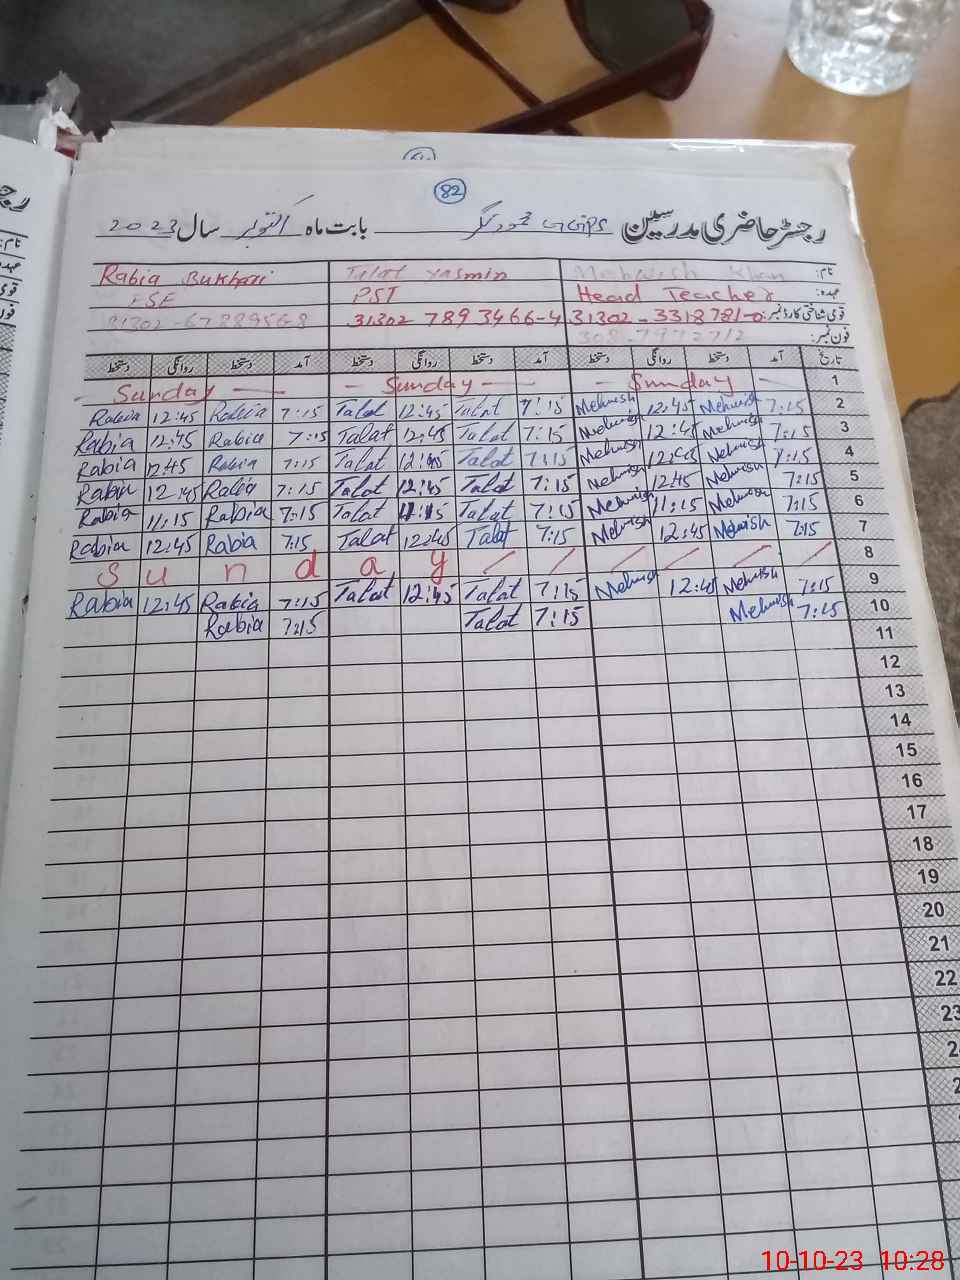 82
رجسٹر حاضری مدرسین GGPS بابت ماہ اکتوبر سال 2023
نام: Mehwish Khan Talat Yasmin Rabia Bukhari
عہدہ: Head Teacher PST ESE
قومی شناختی کارڈ نمبر: 31302-3318781-0 31302 7893466-4 31302-6788956-8
فون نمبر:
تاریخ آمد دستخط روانگی دستخط آمد دستخط روانگی دستخط آمد دستخط روانگی دستخط
1 Sunday Sunday Sunday
2 7:15 Mehwish 12:45 Mehwish 7:15 Talat 12:45 Talat 7:15 Rabia 12:45 Rabia
3 7:15 Mehwish 12:45 Mehwish 7:15 Talat 12:45 Talat 7:15 Rabia 12:45 Rabia
4 7:15 Mehwish 12:45 Mehwish 7:15 Talat 12:45 Talat 7:15 Rabia 12:45 Rabia
5 7:15 Mehwish 12:45 Mehwish 7:15 Talat 12:45 Talat 7:15 Rabia 12:45 Rabia
6 7:15 Mehwish 11:15 Mehwish 7:15 Talat 11:15 Talat 7:15 Rabia 11:15 Rabia
7 7:15 Mehwish 12:45 Mehwish 7:15 Talat 12:45 Talat 7:15 Rabia 12:45 Rabia
8 S u n d a y
9 7:15 Mehwish 12:45 Mehwish 7:15 Talat 12:45 Talat 7:15 Rabia 12:45 Rabia
10 7:15 Mehwish 7:15 Talat 7:15 Rabia
11
12
13
14
15
16
17
18
19
20
21
22
23
10-10-23 10:28